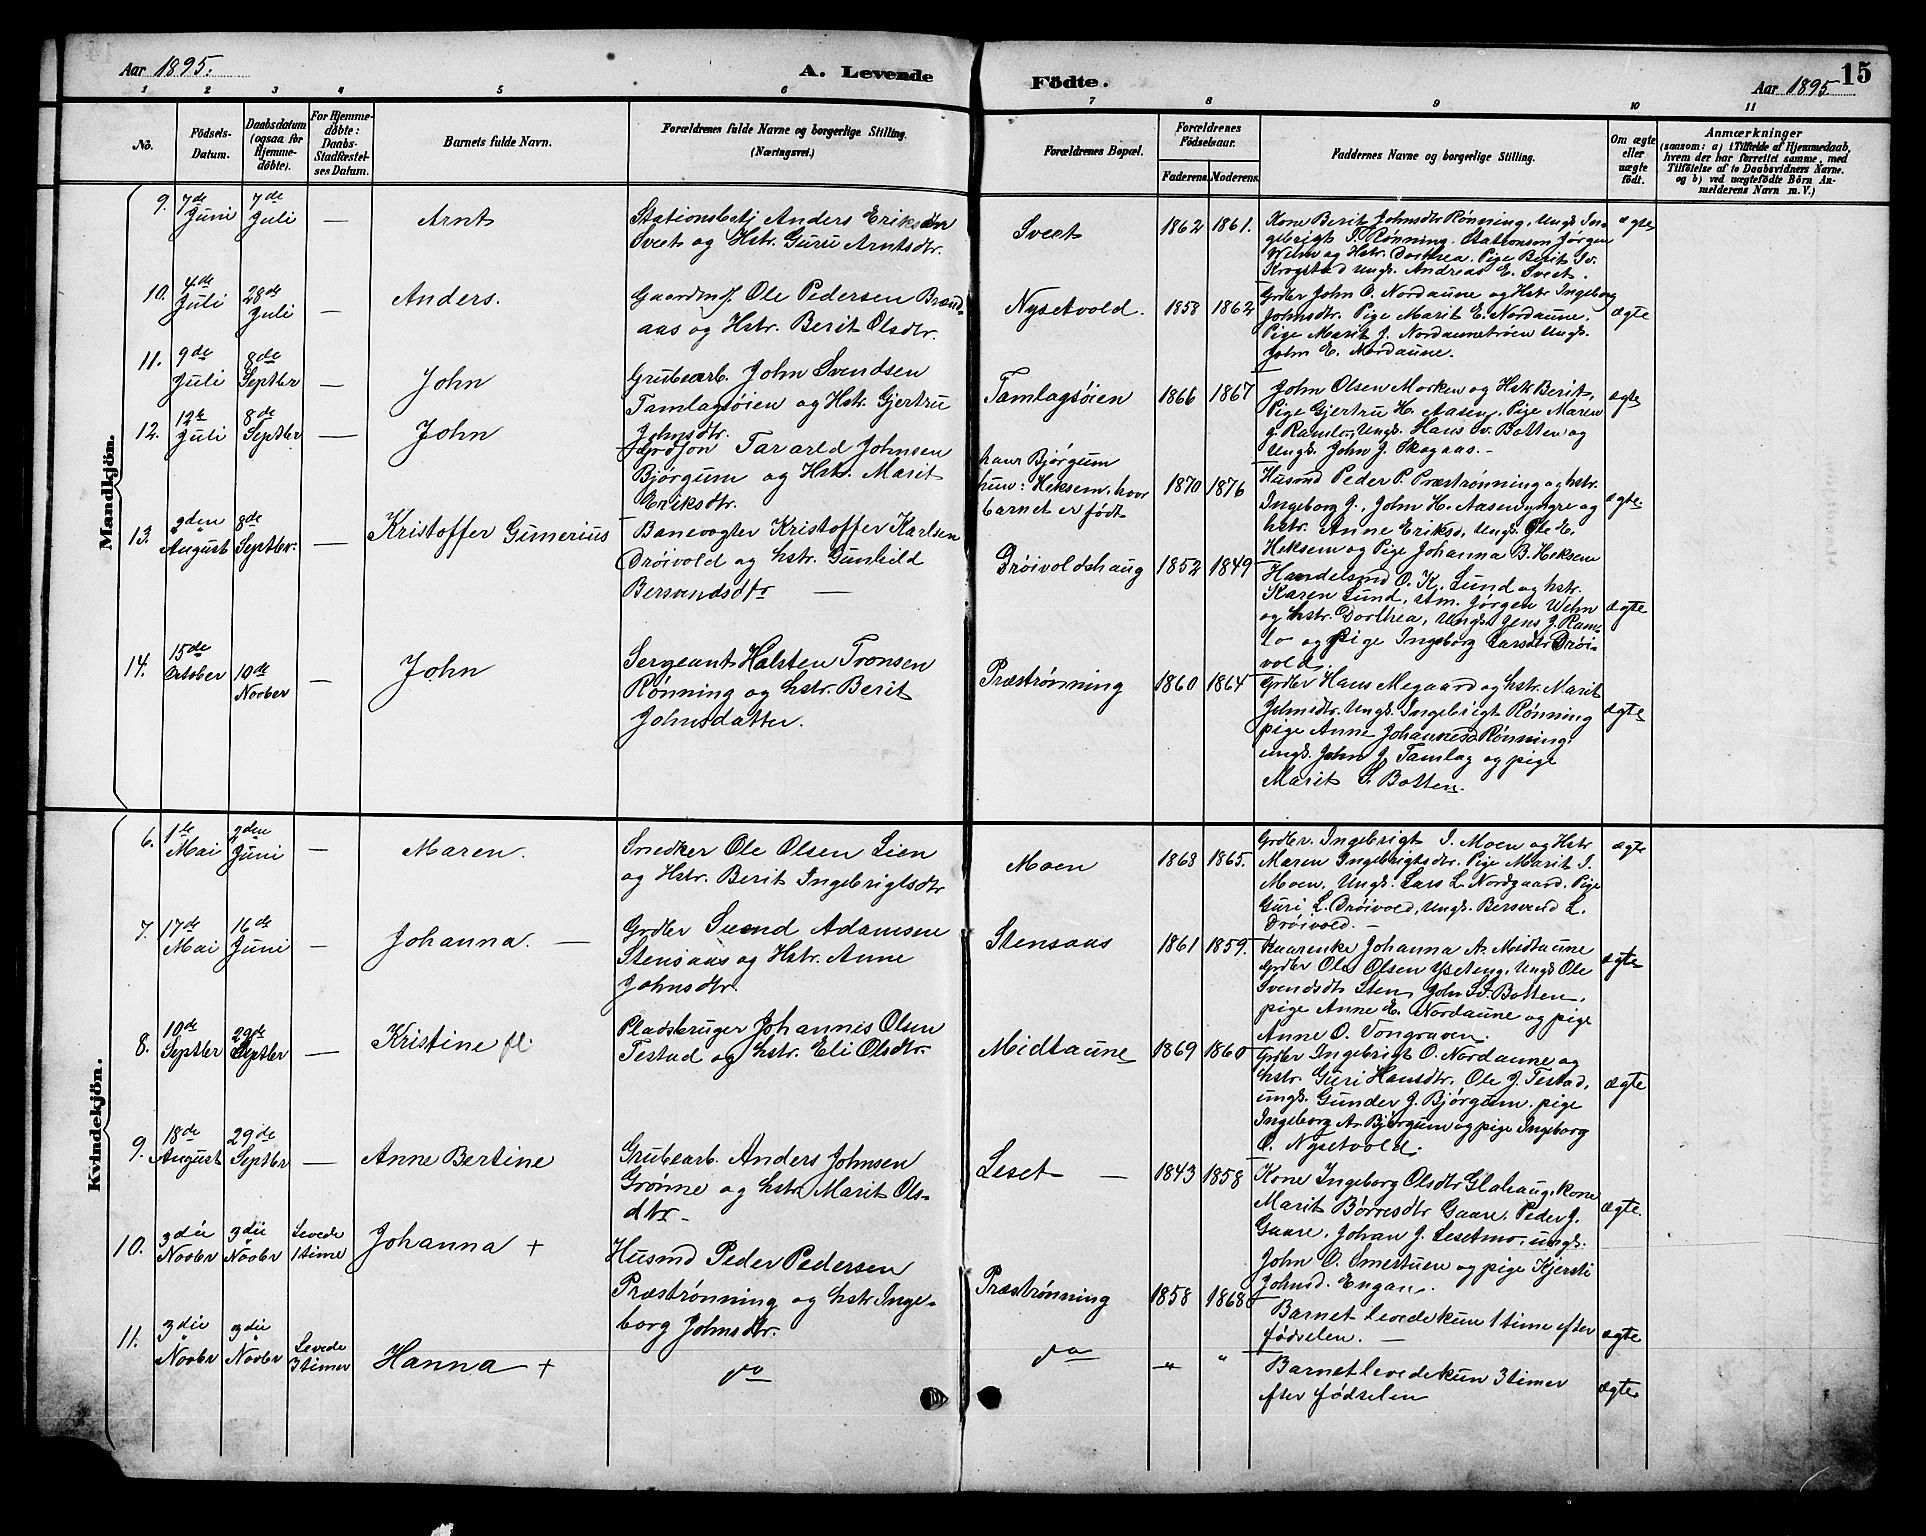 Aar 1895.
A. Levende
Födte.
Aar 1895
15
1 2 3 4 5 6 7 8 9 10 11
No.
Födsels-
Datum.
Daabsdatum
(ogsaa for
Hjemme-
döbte).
For Hjemme-
döbte:
Daabs-
Stadfæstel-
ses Datum.
Barnets fulde Navn.
Forældrenes fulde Navne og borgerlige Stilling.
(Næringsvei.)
Forældrenes Bopæl.
Forældrenes
Födselsaar.
Faderens. Moderens.
Faddernes Navne og borgerlige Stilling.
Om ægte
eller
uægte
födt.
Anmærkninger
(saasom: a) i Tilfælde af Hjemmedaab,
hvem der har forrettet samme, med
Tilföielse af to Daabsvidners Navne.
og b) ved uægtefödte Börn An-
melderens Navn m. V.)
Mandkjön.
9. 7de Juni
7de Juli
—
Arnt
Stationsbetj Anders Eriksen
Sveet og Hstr. Guru Arntsdtr.
Sveet
1862 1861.
Kone Berit Johnsdtr Rønning, Ungk. In-
gebrigt J. Rønning. Stationsm Jørgen
Wehn og Hstr. Dorthea. Pige Berit Sv.
Krogstad Ungk. Andreas E. Sveet.
ægte
10. 4de Juli
28de Juli
—
Anders.
Gaardmf. Ole Pedersen Brænd-
aas og Hstr. Berit Olsdtr.
Nysetvold.
1858 1862
Grdbr John O. Nordaune og Hstr Ingeborg
Johnsdtr. Pige Marit E. Nordaune.
Pige Marit J. Nordaunetrøen Ungk.
John E. Nordaune.
ægte
11. 9de Juli
8de Septbr
—
John
Grubearb. John Svendsen
Tamlagsøien og Hstr. Gjertru
Johnsdtr.
Tamlagsøien
1866 1867
John Olsen Morken og Hstr Berit,
Pige Gjertru H. Aasen, Pige Maren
J. Ramlo, Ungk. Hans Sv. Botten og
Ungk. John J. Skogaas.
ægte
12. 12te Juli
8de Septbr
—
John
Grdsøn Tarald Johnsen
Bjørgum og Hstr. Marit
Eriksdtr.
han: Bjørgum
hun: Heksem, hvor
barnet er født
1870 1876
Husmd Peder P. Præstrønning og hstr.
Ingeborg J., John H. Aasen yngre og
hstr. Anne Eriksd, Ungk. Ole E.
Heksem og Pige Johanna B. Heksem
ægte
13. 2den August
8de Septbr.
—
Kristoffer Gunerius
Banevogter Kristoffer Karlsen
Drøivold og hstr. Gunhild
Bersvendsdtr —
Drøivoldshaug
1852 1849
Handelsmd O. K. Lund og hstr.
Karen Lund, stm. Jørgen Wehn
og hstr. Dorthea, Ungk. Jens J. Ram-
lo og pige Ingeborg Larsdtr Drøi-
vold.
ægte
14. 15de October
10de Novber
—
John
Sergeant Halsten Tronsen
Rønning og hstr. Berit
Johnsdatter.
Præstrønning
1860 1864
Grdbr Hans Megaard og hstr. Marit
Johnsdtr. Ungk. Ingebrigt Rønning
pige Anne Johannesd Rønning,
ungk. John J. Tamlag og pige
Marit S. Botten.
ægte
Kvindekjön.
6. 1ste Mai
2den Juni
—
Maren.
Snedker Ole Olsen Lien
og Hstr. Berit Ingebrigtsdtr
Moen
1868 1865.
Grdbr. Ingebrigt I. Moen og Hstr
Maren Ingebrigtsdtr. Pige Marit I.
Moen. Ungk. Lars L. Nordgaard. Pige
Guri L. Drøivold, Ungk. Bersvend L.
Drøivold. —
ægte
7. 17de Mai
16de Juni
—
Johanna. —
Grdbr Svend Adamsen
Stensaas og Hstr. Anne
Johnsdtr.
Stensaas
1861 1859.
Kaarenke Johanna A. Midtaune
Grdbr Ole Olsen Yseteng, Ungk Ole
Svendsdt Sten, John Sv. Botten,
pige Anne E. Nordaune og pige
Anne O. Vongraven.
ægte
8. 10de Septbr
29de Septbr
—
Kristine
Pladsbruger Johannis Olsen
Testad og hstr. Eli Olsdtr.
Midtaune
1869 1860
Grdbr Ingebrigt O. Nordaune og
hstr. Guri Hansdtr. Ole J. Testad,
ungk. Gunder J. Bjørgum. pige
Ingeborg A. Bjørgum og pige Ingeborg
O. Nysetvold.
ægte
9. 18de August
29de Septbr
—
Anne Bertine
Grubearb. Anders Johnsen
Grønne og hstr. Marit Ols-
dtr.
Leset —
1843 1858
Kone Ingeborg Olsdtr Glahaug, kone
Marit Børresdtr Gaare. Peder J.
Gaare. Johan J. Lesetmo, ungk.
John O. Smestuen og pige Kjersti
Johnsd. Engan.
ægte.
10. 3die Novbr
3die Novbr
Levede
1 time
Johanna +
Husmd Peder Pedersen
Præstrønning og hstr Inge-
borg Johnsdtr.
Præstrønning
1858 1868
Barnet levede kun 1 time efter
fødselen. —
ægte
11. 3die Novbr
3die Novbr
Levede
3 timer
Hanna +
do
do
" "
Barnet levede kun 3 timer
efter fødselen
ægte